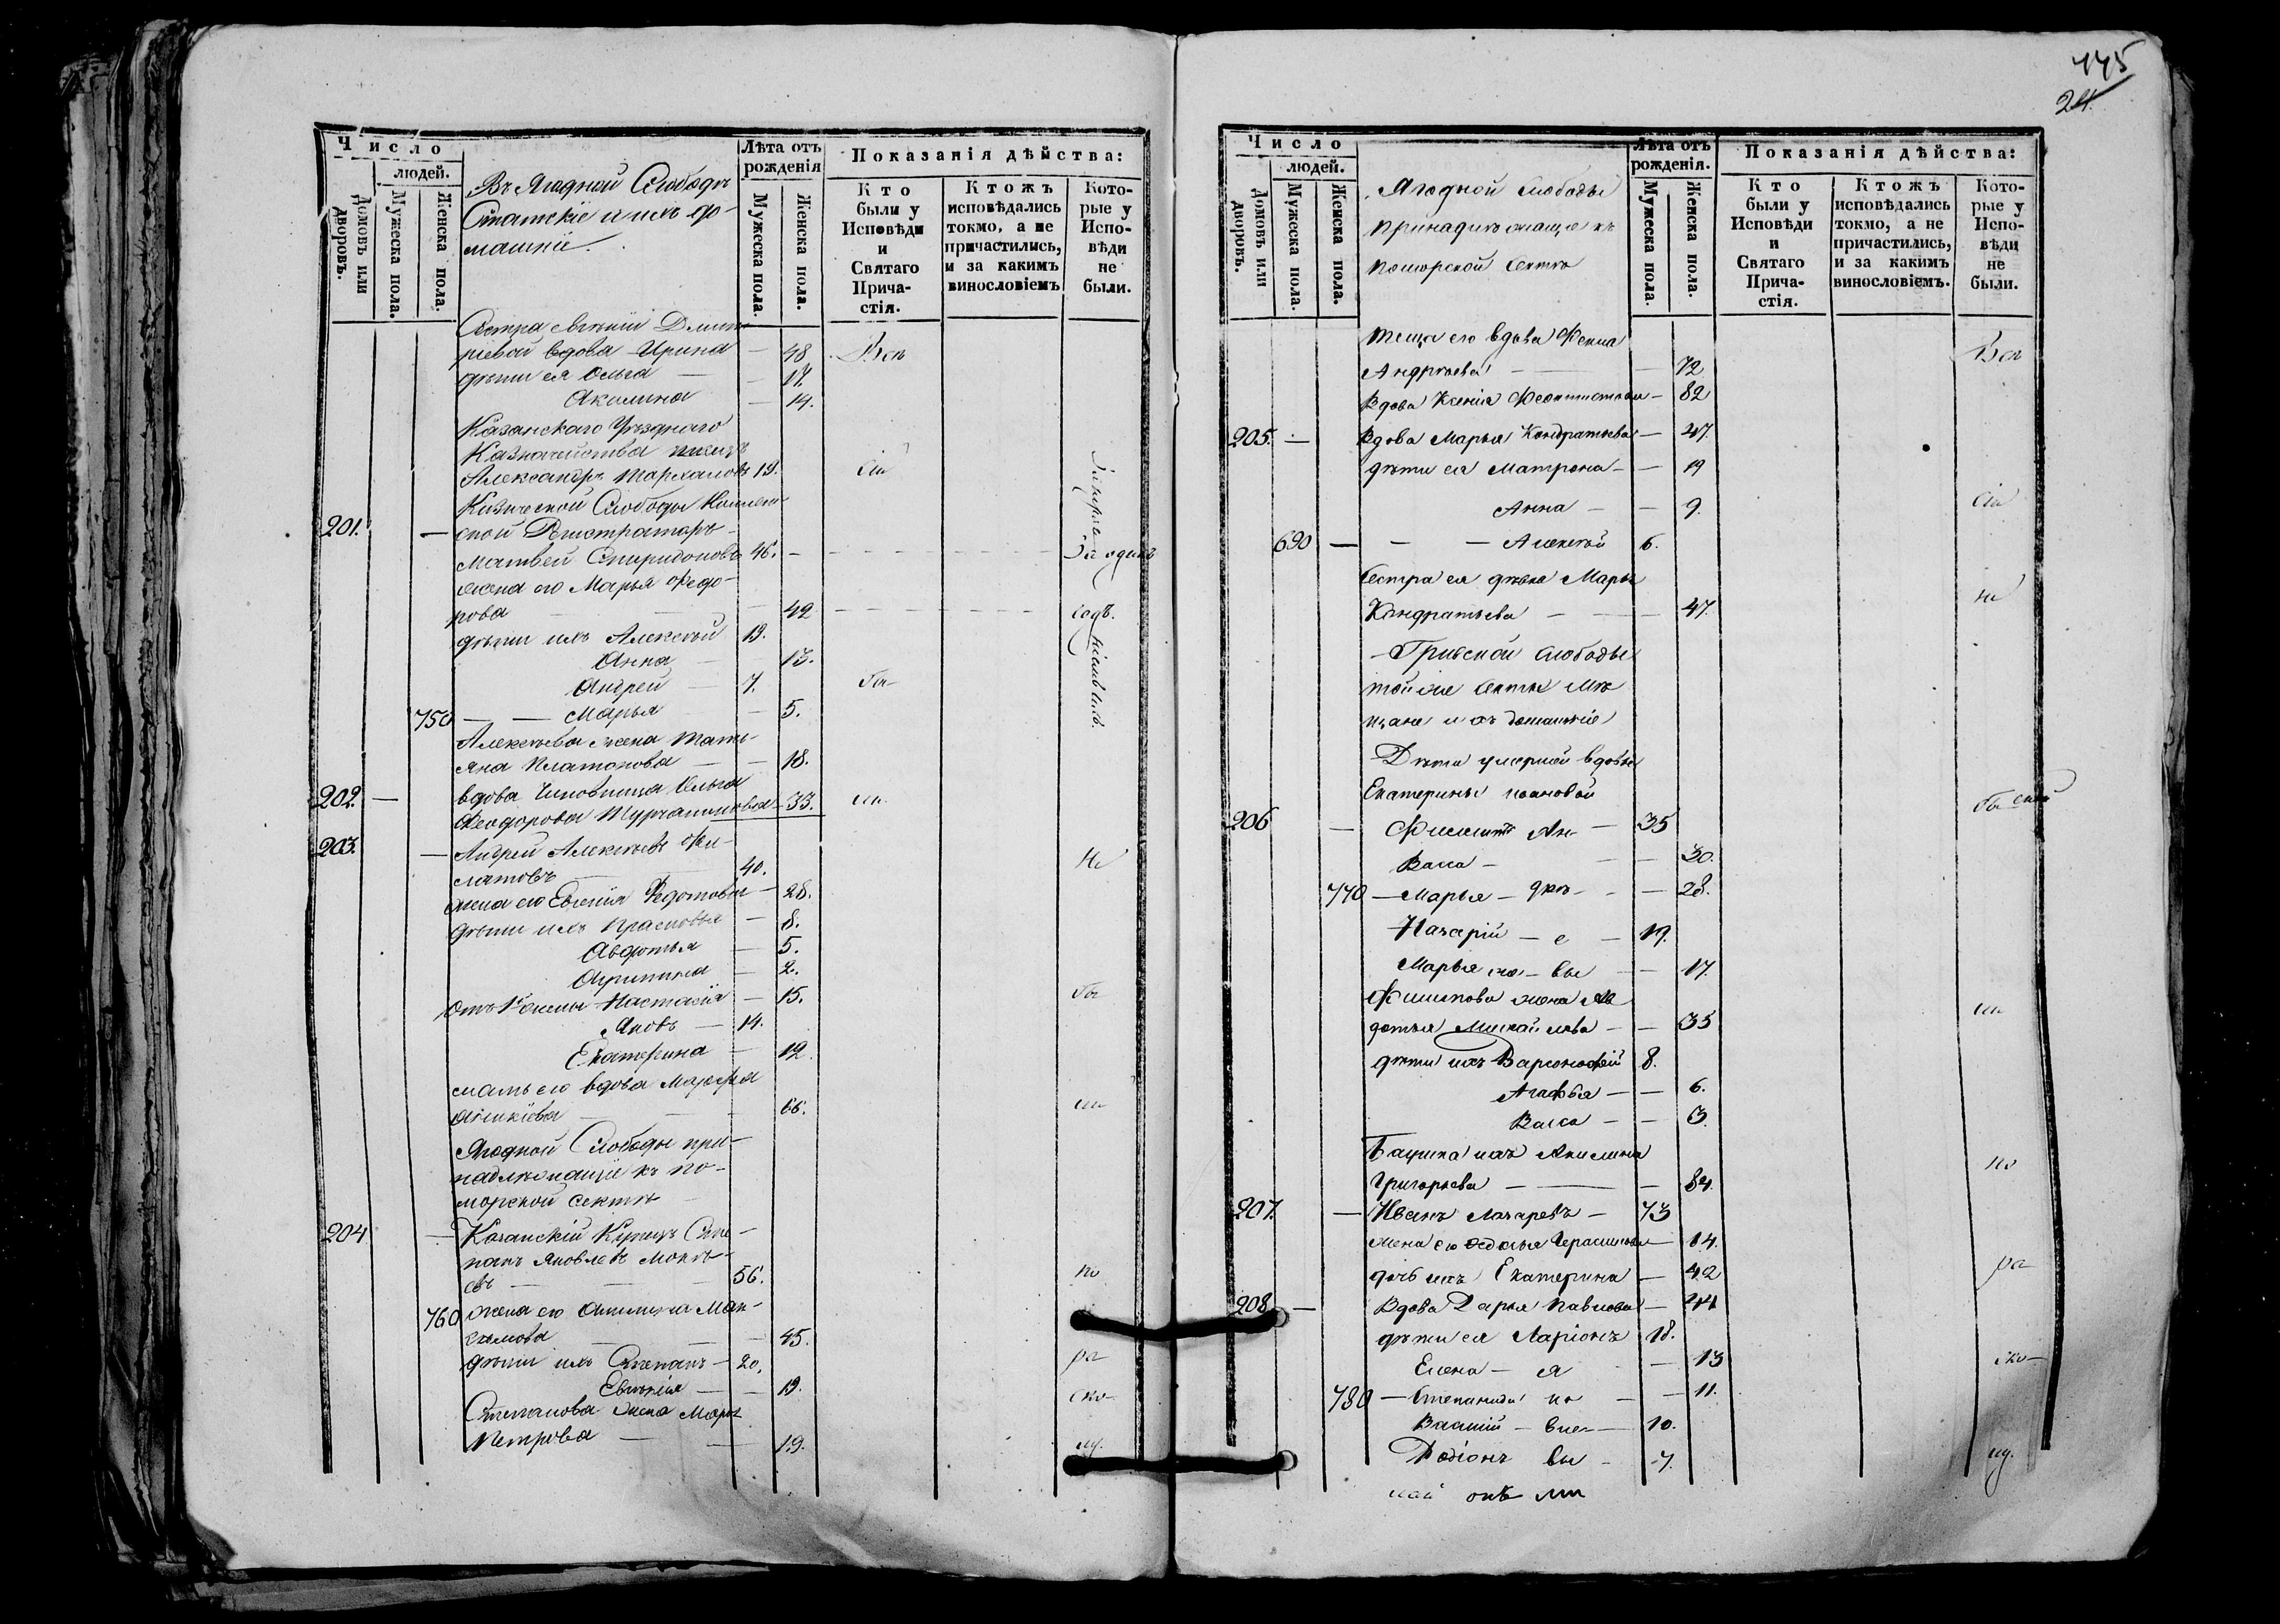 Число
людей.
Домовъ или дворовъ.
Мужеска пола.
Женска пола.
Въ Ягодной Слободѣ
Статскіе и ихъ до-
машніе.
Лѣта отъ
рожденія
Мужеска пола.
Женска пола.
Показанія дѣйства:
Кто
были у
Исповѣди
и
Святаго
Прича-
стія.
Ктожъ
исповѣдались
токмо, а не
причастились,
и за какимъ
винословіемъ
Кото-
рые у
Испо-
вѣди
не
были.
Сестра Евгеніи Дмит-
ріевой вдова Ирина — 48 Всѣ
дѣти ея Ольга — — 17.
Акилина — 14.
Казанскаго Уѣзднаго
Казначейства писецъ
Александръ Тарханов 19. сіи
Кизической Слободы Коллеж-
201. — ской Регистраторъ
Матвей Спиридоновъ 46. - За одинъ
жена его Марья Федо-
рова — 42 годъ.
дѣти ихъ Алексѣй 19.
Анна — 13.
Андрей — 7. бы-
750 — — Марья — 5.
Алексѣева жена Тать-
яна Платонова — — 18.
202. — вдова Чиновница Ольга
Феодорова Турчанинова — 33. ли.
203. — Андрей Алексѣевъ Фи-
латовъ — 40. Не
жена его Евгенія Федотова — 28.
дѣти ихъ Прасковья — 8.
Авдотья — 5.
Агрипина — 2.
отъ 1й жены Настасія — 15. бы
Яковъ — 14.
Екатерина — 12.
мать его вдова Марфа
Аникіева — 66. ли
Ягодной Слободы при-
надлежащіе къ по-
морской сектѣ
204 — Казанскій Купецъ Сте-
панъ Яковлевъ Мокѣ-
евъ — 56. по
760 жена его Акилина Мак-
симова — 45.
дѣти ихъ Степанъ — 20. ра
Евгенія — — 19.
Степанова жена Марья ско-
Петрова — 19. му.
445
24.
Число
людей.
Домовъ или дворовъ.
Мужеска пола.
Женска пола.
Ягодной Слободы
принадлежащіе къ
поморской сектѣ
Лѣта отъ
рожденія.
Мужеска пола.
Женска пола.
Показанія дѣйства:
Кто
были у
Исповѣди
и
Святаго
Прича-
стія.
Ктожъ
исповѣдались
токмо, а не
причастились,
и за какимъ
винословіемъ.
Кото-
рые у
Испо-
вѣди
не
были.
теща его вдова Фекла Всѣ
Андреева — — 72
Вдова Ксенія Феоктистова — 82
205. — Вдова Марья Кондратьева — 47.
дѣти ея Матрона — — 19
Анна — — 9. сіи
690 — — — Алексѣй 6.
Сестра ея дѣвка Марья
Кондратьева — — 47. не
Гривской слободы
той же секты мѣ-
щане и ихъ домашніе
Дѣти умершей вдовы
Екатерины Ивановой
206 — Филиппъ — 35
Васса — — 30.
770 — Марья — — 28.
Назарій — 19.
Марья — — 17.
Филипова жена Ав
дотья Михайлова — — 35 ли
дѣти ихъ Варсонофій 8.
Агафья — — 6.
Васса — — 3.
Бабушка ихъ Акилина
Григорьева — — 84. по
207. — Иванъ Лазаревъ — 73
жена его Федосья Герасимова — 64.
дочь ихъ Екатерина — 42 ра
208 — Вдова Дарья Павлова — 44
дѣти ея Ларіонъ 18.
Елена — я — 13 ско-
780 — Степанида — — 11.
Василій — — 10.
Родіонъ — 7. му.